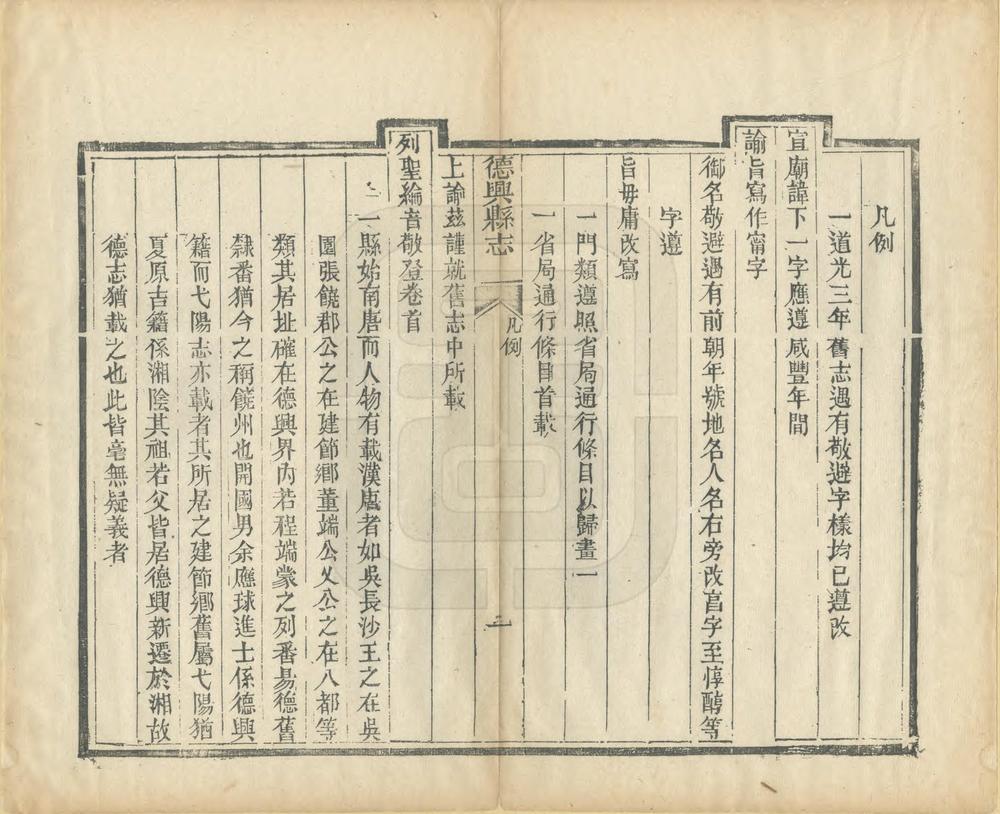 凡例
一道光三年舊志遇有敬避字樣均已遵改
宣廟諱下一字應遵咸豐年間
諭旨寫作甯字
御名敬避遇有前朝年號地名人名右旁改㐭字至惇醕等
字遵
旨毋庸改寫
一門類遵照省局通行條目以歸畫一
一省局通行條目首載
德興縣志
凡例
三
上諭茲謹就舊志中所載
列聖綸音敬登卷首
一縣始南唐而人物有載漢唐者如吳長沙王之在吳
園張饒郡公之在建節鄉董端公乂公之在八都等
類其居址確在德興界內若程端蒙之列番昜德舊
隸番猶今之稱饒州也開國男余應球進士係德興
籍而弋陽志亦載者其所居之建節鄉舊屬弋陽猶
夏原吉籍係湘陰其祖若父皆居德興新遷於湘故
德志猶載之也此皆毫無疑義者